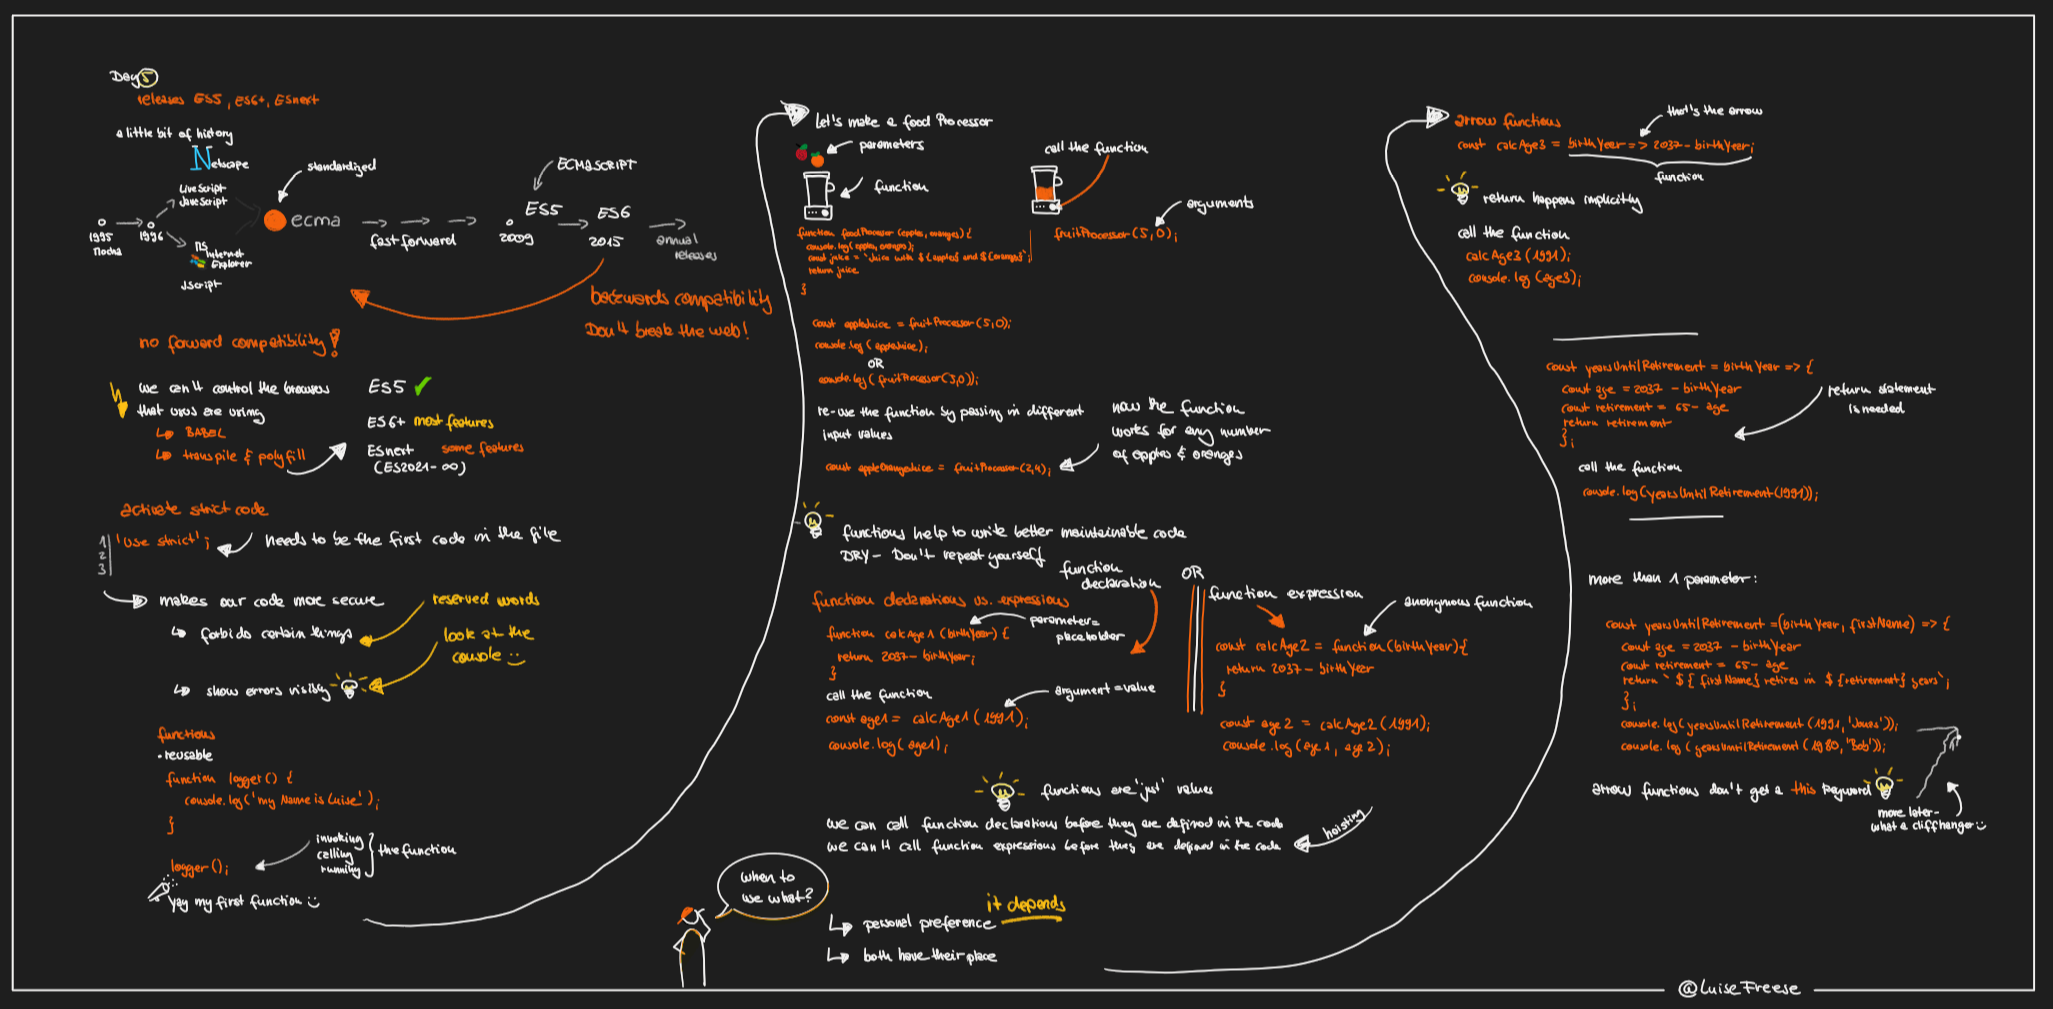 Day 5
releases ES5, ES6+, ESnext
a little bit of history
Netscape
LiveScript
JavaScript
standardized
1995
Mocha
1996
MS
Internet
Explorer
JScript
ecma
fast forward
ECMASCRIPT
ES5
2009
ES6
2015
annual
releases
backwards compatibility
Don't break the web!
no forward compatibility!
we can't control the browsers
that users are using
BABEL
transpile & polyfill
ES5
ES6+ most features
ESnext some features
(ES2021-∞)
activate strict code
1 'use strict';
2
3
needs to be the first code in the file
makes our code more secure
forbids certain things
reserved words
show errors visibly
look at the
console
functions
• reusable
function logger() {
console.log('my Name is Luise');
}
logger();
invoking
calling
running
the function
yay my first function
Let's make a food Processor
parameters
function
call the function
arguments
fruitProcessor(5,0);
function foodProcessor (apples, oranges) {
console.log(apples, oranges);
const juice = `Juice with ${apples} and ${oranges}`;
return juice
}
const appleJuice = fruitProcessor(5,0);
console.log(appleJuice);
OR
console.log(fruitProcessor(5,0));
re-use the function by passing in different
input values
const appleOrangeJuice = fruitProcessor(2,4);
now the function
works for any number
of apples & oranges
functions help to write better maintainable code
DRY - Don't repeat yourself
function declarations vs. expressions
function
declaration
function calcAge1 (birthYear) {
return 2037 - birthYear;
}
parameter =
placeholder
call the function
const age1 = calcAge1 (1991);
console.log(age1);
argument = value
OR
function expression
anonymous function
const calcAge2 = function(birthYear){
return 2037 - birthYear
}
const age2 = calcAge2(1991);
console.log(age1, age2);
functions are 'just' values
we can call function declarations before they are defined in the code
we can't call function expressions before they are defined in the code
hoisting
when to
use what?
it depends
personal preference
both have their place
arrow functions
that's the arrow
const calcAge3 = birthYear => 2037 - birthYear;
function
return happens implicitly
call the function
calcAge3(1991);
console.log(age3);
const yearsUntilRetirement = birthYear => {
const age = 2037 - birthYear
const retirement = 65 - age
return retirement
};
return statement
is needed
call the function
console.log(yearsUntilRetirement(1991));
more than 1 parameter:
const yearsUntilRetirement = (birthYear, firstName) => {
const age = 2037 - birthYear
const retirement = 65 - age
return `${firstName} retires in ${retirement} years`;
};
console.log(yearsUntilRetirement (1991, 'Jonas'));
console.log(yearsUntilRetirement (1980, 'Bob'));
arrow functions don't get a this keyword
more later -
what a cliffhanger
@LuiseFreese